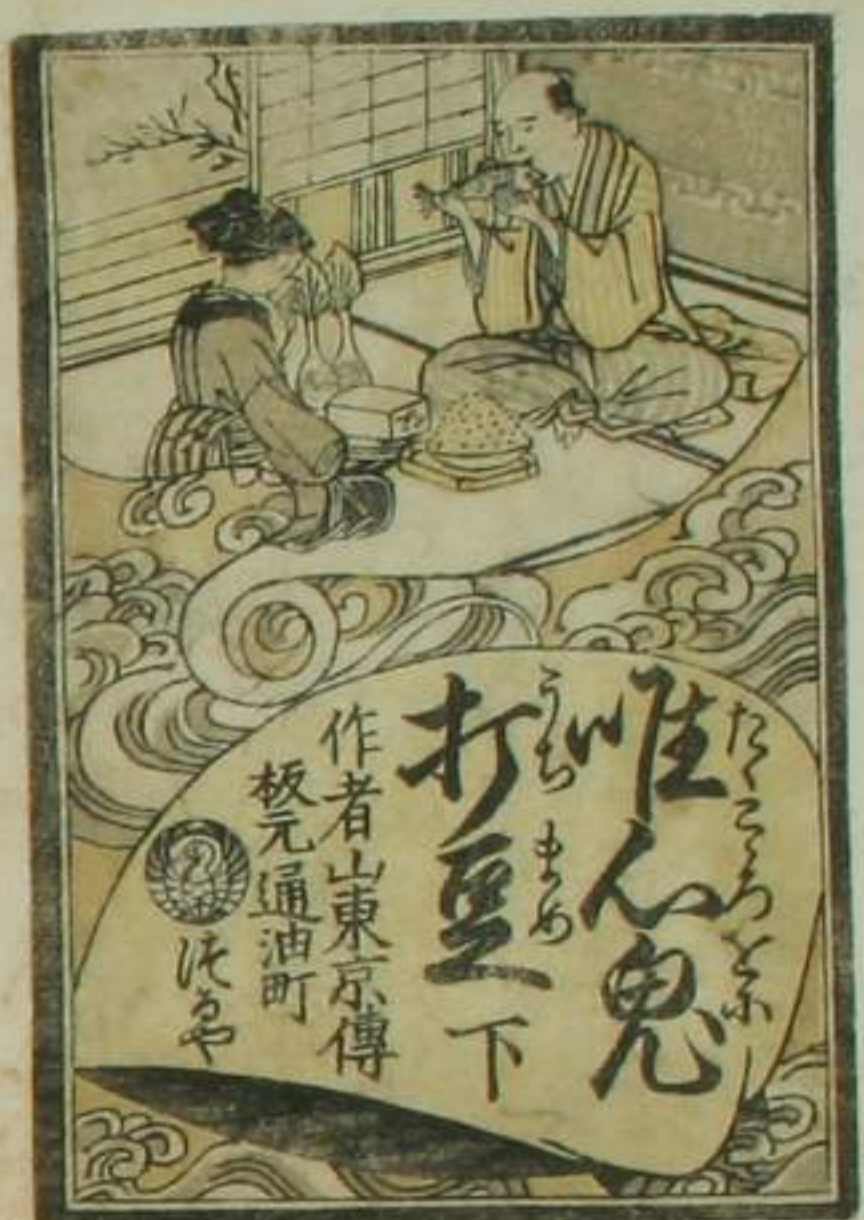 たゝこゝろをに
唯心鬼
うちまめ
打豆 下
作者山東京傳
板元通油町
つるや